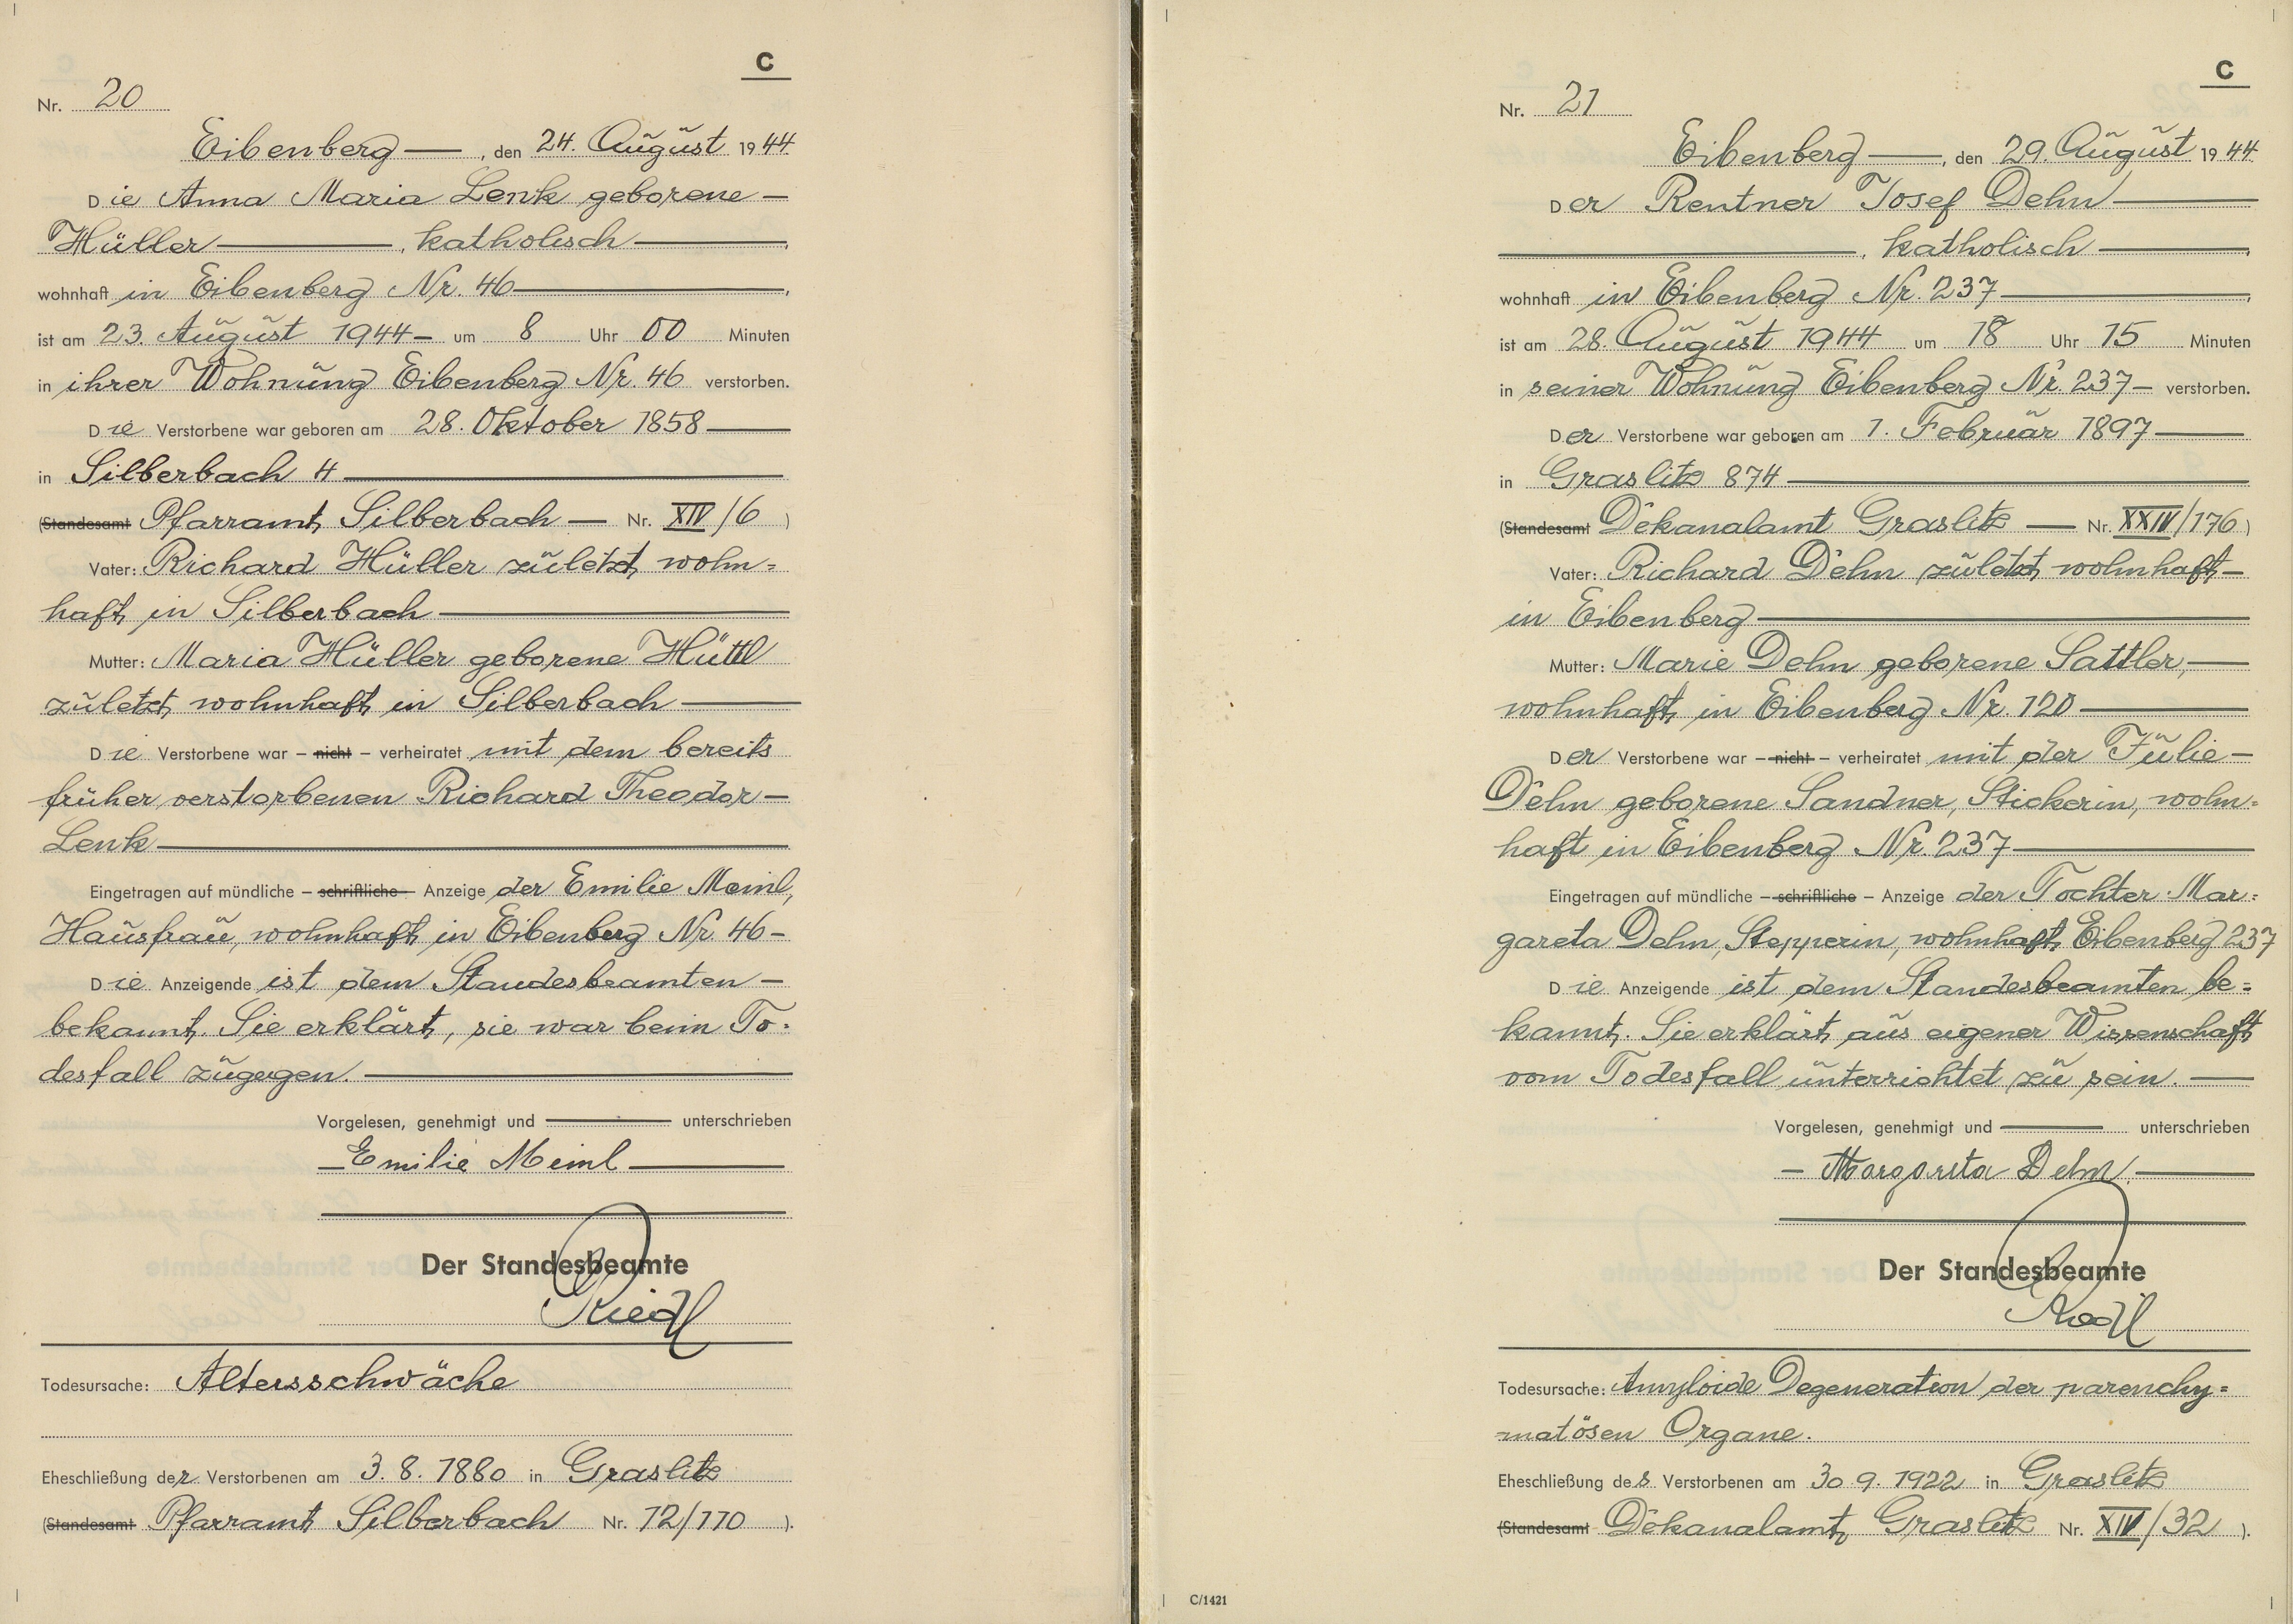 C
Nr. 20
Eibenberg —, den 24. August 1944
Die Anna Maria Lenk geborene —
Hüller —, katholisch —,
wohnhaft in Eibenberg Nr. 46 —,
ist am 23. August 1944 — um 8 Uhr 00 Minuten
in ihrer Wohnung Eibenberg Nr. 46 verstorben.
Die Verstorbene war geboren am 28. Oktober 1858 —
in Silberbach 4 —
(Standesamt Pfarramt Silberbach — Nr. XIV/6)
Vater: Richard Hüller zuletzt wohn=
haft in Silberbach —
Mutter: Maria Hüller geborene Hüttl
zuletzt wohnhaft in Silberbach —
Die Verstorbene war – nicht – verheiratet mit dem bereits
früher verstorbenen Richard Theodor —
Lenk —
Eingetragen auf mündliche – schriftliche – Anzeige der Emilie Meinl,
Hausfrau, wohnhaft in Eibenberg Nr. 46 –
Die Anzeigende ist dem Standesbeamten —
bekannt. Sie erklärt, sie war beim To=
desfall zugegen. —
Vorgelesen, genehmigt und — unterschrieben
— Emilie Meinl —
Der Standesbeamte
Riedl
Todesursache: Altersschwäche
Eheschließung der Verstorbenen am 3. 8. 1880 in Graslitz
(Standesamt Pfarramt Silberbach Nr. 12/110).
C
Nr. 21
Eibenberg —, den 29. August 1944
Der Rentner Josef Dehn —
—, katholisch —,
wohnhaft in Eibenberg Nr. 237 —,
ist am 28. August 1944 um 18 Uhr 15 Minuten
in seiner Wohnung Eibenberg Nr. 237 — verstorben.
Der Verstorbene war geboren am 1. Februar 1897 —
in Graslitz 874 —
(Standesamt Dekanalamt Graslitz — Nr. XXIV/176)
Vater: Richard Dehn zuletzt wohnhaft —
in Eibenberg —
Mutter: Marie Dehn geborene Sattler, —
wohnhaft in Eibenberg Nr. 120 —
Der Verstorbene war – nicht – verheiratet mit der Julie —
Dehn geborene Sandner, Stickerin, wohn=
haft in Eibenberg Nr. 237 —
Eingetragen auf mündliche – schriftliche – Anzeige der Tochter Mar=
gareta Dehn, Stepperin, wohnhaft Eibenberg 237
Die Anzeigende ist dem Standesbeamten be=
kannt. Sie erklärt aus eigener Wissenschaft
vom Todesfall unterrichtet zu sein. —
Vorgelesen, genehmigt und — unterschrieben
— Margareta Dehn. —
Der Standesbeamte
Riedl
Todesursache: Amyloide Degeneration der parenchy=
matösen Organe.
Eheschließung des Verstorbenen am 30. 9. 1922 in Graslitz
(Standesamt Dekanalamt Graslitz Nr. XIV/32).
C/1421